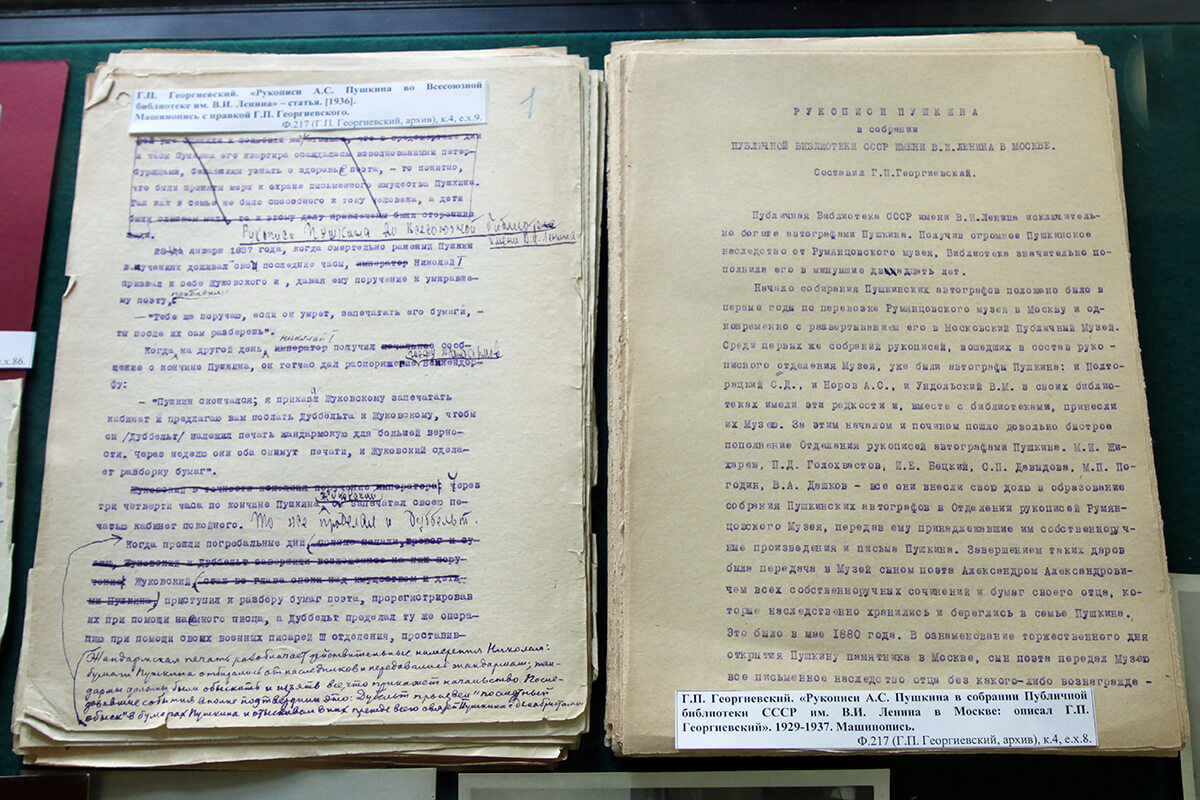 Г.П. Георгиевский. «Рукописи А.С. Пушкина во Всесоюзной
библиотеке им. В.И. Ленина» – статья. [1936].
Машинопись с правкой Г.П. Георгиевского.
Ф.217 (Г.П. Георгиевский, архив), к.4, е.х.9.
1
и часы Пушкина его квартира осаждалась взволнованными петер-
буржцами, бежавшими узнать о здоровье поэта, - то понятно,
что были приняты меры к охране письменного имущества Пушкина.
Так как в семье не было способного к тому человека, а дети
были слишком малы, то к этому делу привлечены были сторонние
люди.
Рукописи Пушкина во Всесоюзной библиотеке
имени В.И. Ленина
28-го января 1837 года, когда смертельно раненый Пушкин
в мучениях доживал свои последние часы, император Николай I
призвал к себе Жуковского и, давая ему поручение к умиравше-
му поэту, прибавил
-"Тебе же поручаю, если он умрет, запечатать его бумаги, -
ты после их сам разберешь".
Николай I
Когда на другой день император получил печальное сооб-
щение о кончине Пушкина, он тотчас дал распоряжение шефу жандармов Бенкендор-
фу:
- "Пушкин скончался; я приказал Жуковскому запечатать
кабинет и предлагаю вам послать Дуббельта к Жуковскому, чтобы
он /Дуббельт/ наложил печать жандармскую для большей верно-
сти. Через неделю они оба снимут печати, и Жуковский сдела-
ет разборку бумаг".
Жуковский в точности исполнил поручение императора: Через
три четверти часа по кончине Пушкина Жуковский он запечатал своею пе-
чатью кабинет покойного. То же проделал и Дуббельт.
Когда прошли погребальные дни
Жуковский и Дуббельт завершили возложенное на них пору-
чение, Жуковский став во главе опеки над имуществом и деть-
ми Пушкина, приступил к разбору бумаг поэта, прорегистрировав
их при помощи наемного писца, а Дуббельт проделал ту же опера-
цию при помощи своих военных писарей III отделения, проставив-
Жандармская печать разоблачает действительные намерения Николая:
бумаги Пушкина отбирались от наследников и передавались жандармам; жан-
дармы должны были обыскать и изъять все, что прикажет начальство. После-
довавшие события вполне подтвердили это: Дубельт произвел "посмертный
обыск" в бумагах Пушкина и отыскивал в них прежде всего связи Пушкина с декабристами.
РУКОПИСИ ПУШКИНА
в собрании
ПУБЛИЧНОЙ БИБЛИОТЕКИ СССР ИМЕНИ В.И.ЛЕНИНА В МОСКВЕ.
Составил Г.П.Георгиевский.
Публичная Библиотека СССР имени В.И.Ленина исключитель-
но богата автографами Пушкина. Получив огромное Пушкинское
наследство от Румянцовского музея, Библиотека значительно по-
полнила его в минувшие двадцать лет.
Начало собирания Пушкинских автографов положено было в
первые годы по перевозке Румянцовского музея в Москву и од-
новременно с развертыванием его в Московский Публичный Музей.
Среди первых же собраний рукописей, вошедших в состав руко -
писного отделения Музея, уже были автографы Пушкина: и Полто-
рацкий С.Д., и Норов А.С., и Ундольский В.М. в своих библио-
теках имели эти редкости и, вместе с библиотеками, принесли
их Музею. За этим началом и почином пошло довольно быстрое
пополнение Отделения рукописей автографами Пушкина. М.И. Жи-
харев, П.Д. Голохвастов, И.Е. Бецкий, С.П. Давыдова, М.П. По-
годин, В.А. Дашков - все они внесли свою долю в образование
собрания Пушкинских автографов в Отделении рукописей Румян-
цовского Музея, передав ему принадлежавшие им собственноруч-
ные произведения и письма Пушкина. Завершением таких даров
была передача в Музей сыном поэта Александром Александрови-
чем всех собственноручных сочинений и бумаг своего отца, ко-
торые наследственно хранились и береглись в семье Пушкина.
Это было в мае 1880 года. В ознаменование торжественного дня
открытия Пушкину памятника в Москве, сын поэта передал Музею
все письменное наследство отца без какого-либо вознагражде -
Г.П. Георгиевский. «Рукописи А.С. Пушкина в собрании Публичной
библиотеки СССР им. В.И. Ленина в Москве: описал Г.П.
Георгиевский». 1929-1937. Машинопись.
Ф.217 (Г.П. Георгиевский, архив), к.4, е.х.8.
е.х.86.